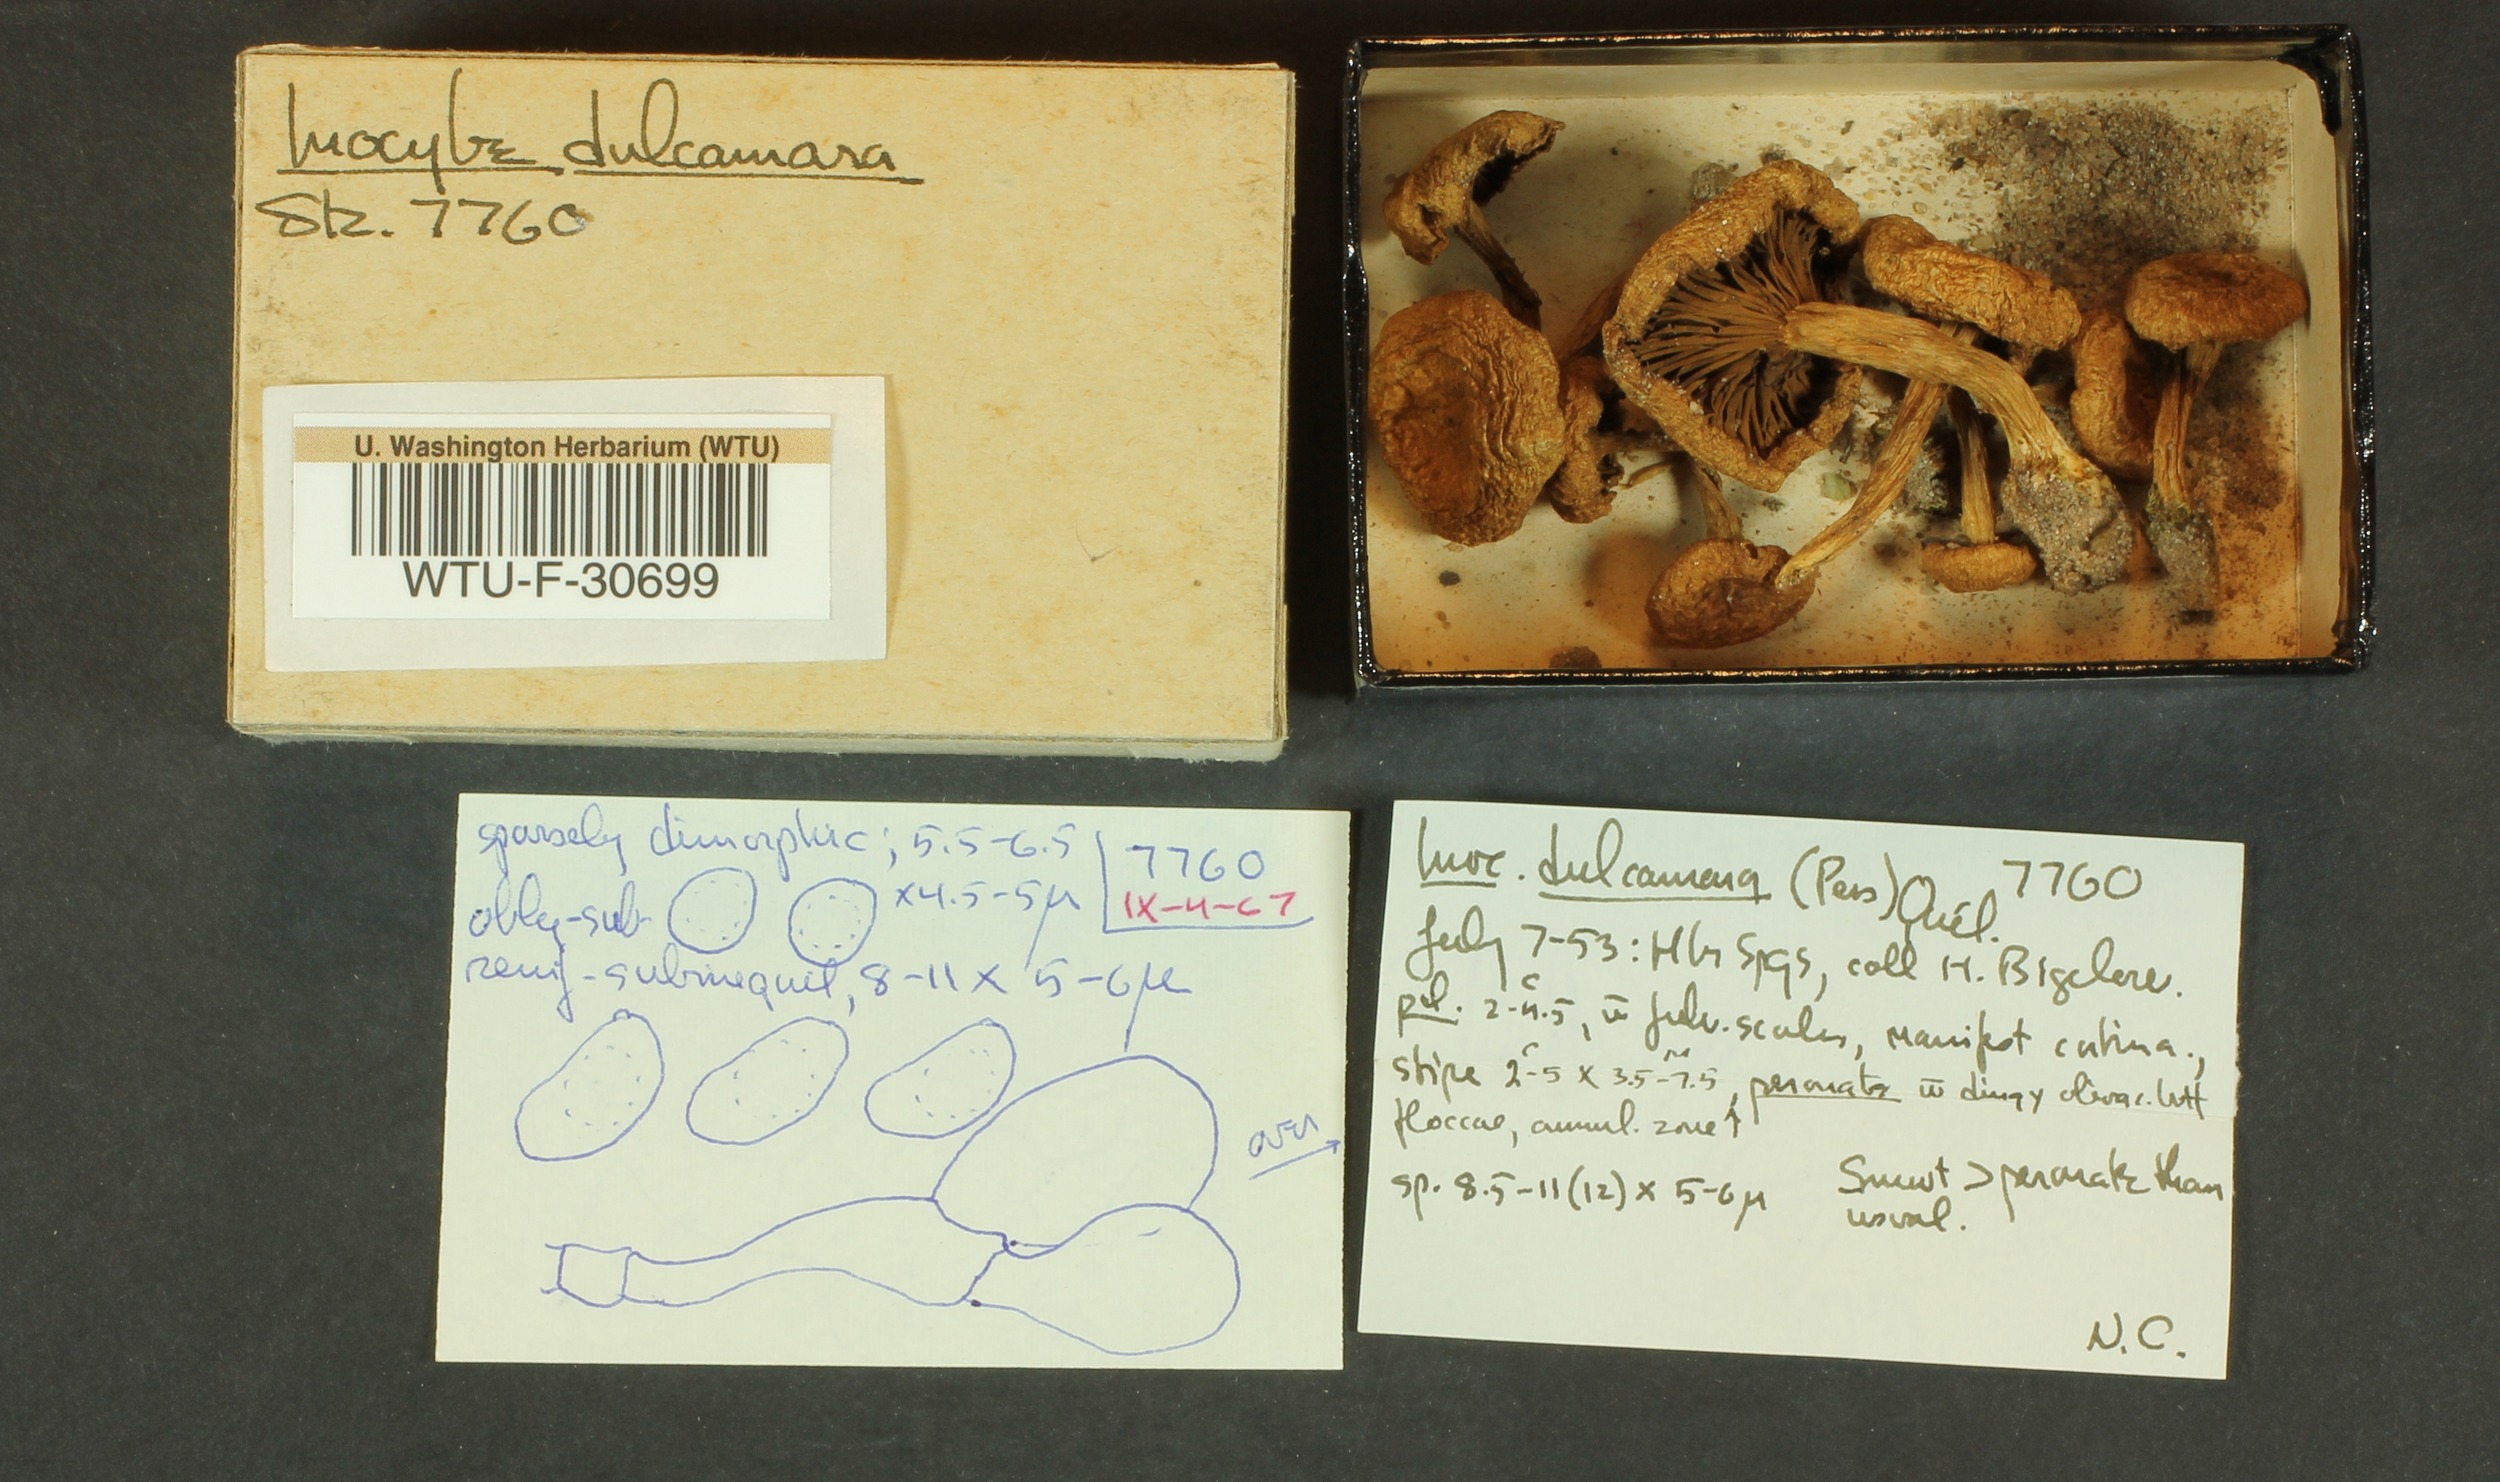 Inocybe dulcamara
Stz. 7760
U. Washington Herbarium (WTU)
WTU-F-30699
sparsely dimorphic; 5.5-6.5
x4.5-5µ
7760
IX-4-67
oblg-sub-
renif-subinequil, 8-11 x 5-6µ
over
Inoc. dulcamara (Pers) Quél. 7760
July 7-53: Hbr Spgs, coll H. Bigelow.
pil. 2-4.5, c̄ fulv. scales, manifest cortina.,
stipe 2-5 x 3.5-7.5, peronate c̄ dingy olivac. buff
floccae, annul. zone ↑
sp. 8.5-11(12) x 5-6µ
Smwt > peronate than
usual.
N.C.